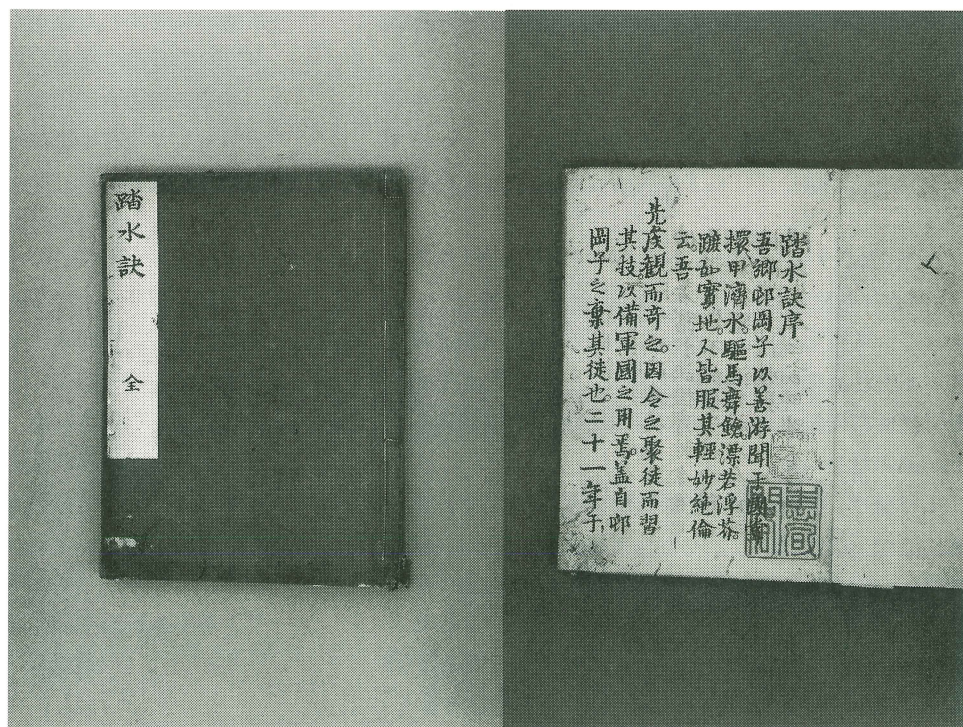 踏水訣
全
踏水訣序
吾鄉邨岡子以善游聞于
擐甲濟水。驅馬舞鎗。漂若浮芥。
蹠如實地。人皆服其輕妙絕倫
云吾
先侯觀而奇之。因令之聚徒而習
其技以備軍國之用焉。蓋自邨
岡子之棄其徒也。二十一年于